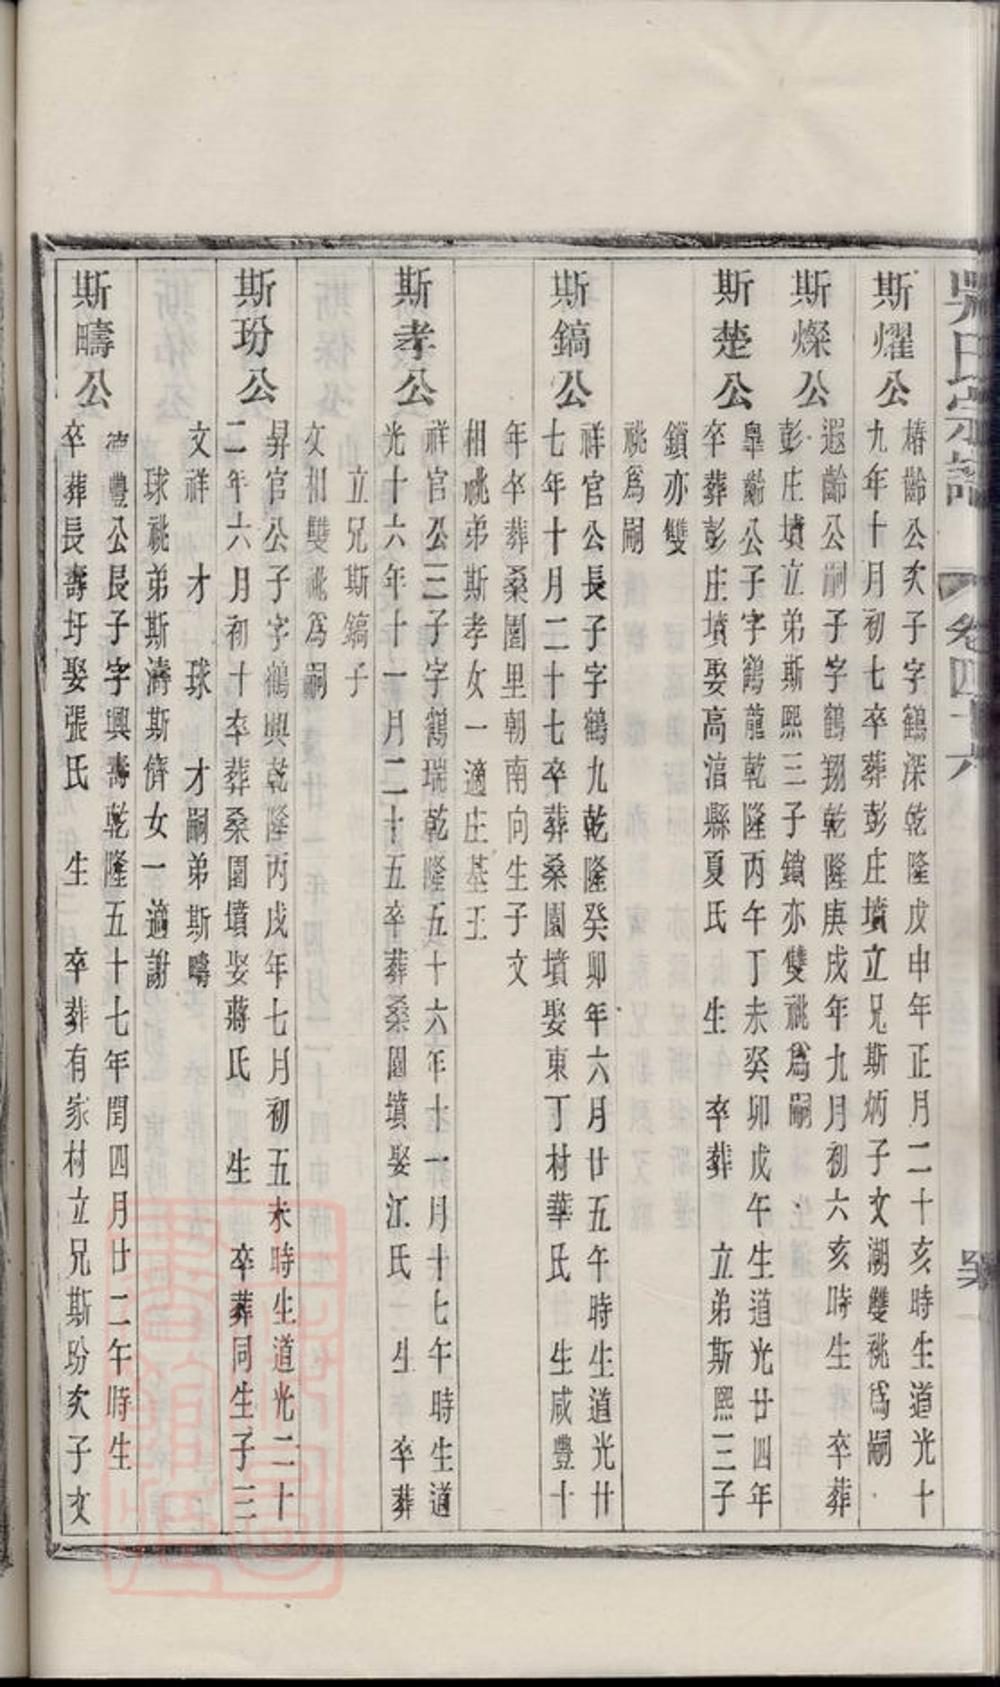 吳氏宗譜 卷四十六
斯燿公
椿齡公次子字鶴深乾隆戊申年正月二十亥時生道光十
九年十月初七卒葬彭庄墳立兄斯炳子文潮雙祧爲嗣
斯燦公
遐齡公嗣子字鶴翔乾隆庚戌年九月初六亥時生 卒葬
彭庄墳立弟斯熙三子鎖亦雙祧爲嗣
斯楚公
臯齡公子字鶴龍乾隆丙午丁未癸卯戊午生道光廿四年
卒葬彭庄墳娶高淯縣夏氏 生 卒葬 立弟斯熙三子
鎖亦雙
祧爲嗣
斯鎬公
祥官公長子字鶴九乾隆癸卯年六月廿五午時生道光廿
七年十月二十七卒葬桑園墳娶東丁村華氏 生咸豐十
年卒葬桑園里朝南向生子文
相祧弟斯孝女一適庄基王
斯孝公
祥官公三子字鶴瑞乾隆五十六年十一月十七午時生道
光十六年十一月二十五卒葬桑園墳娶江氏 生 卒葬
立兄斯鎬子
文相雙祧爲嗣
斯玢公
昇官公子字鶴興乾隆丙戌年七月初五未時生道光二十
二年六月初十卒葬桑園墳娶蔣氏 生 卒葬同生子三
文祥 才 球 才嗣弟斯疇
球祧弟斯濤斯儕女一適謝
斯疇公
德豐公長子字興壽乾隆五十七年閏四月廿二午時生
卒葬長壽圩娶張氏 生 卒葬有家村立兄斯玢次子文